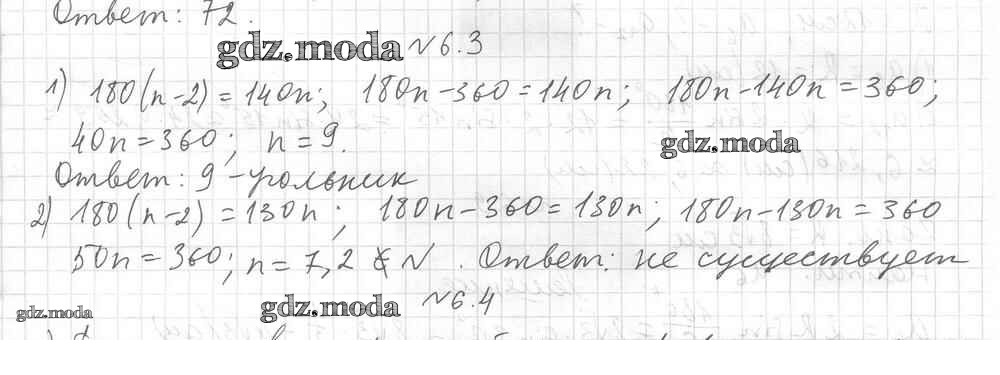 Ответ: 72.
gdz.moda №6.3
1) 180(n-2) = 140n; 180n-360=140n; 180n-140n=360;
40n=360; n=9. gdz.moda
Ответ: 9-угольник
2) 180(n-2) = 130n; 180n-360=130n; 180n-130n=360
50n=360; n=7,2 ∉ N. Ответ: не существует
gdz.moda gdz.moda №6.4